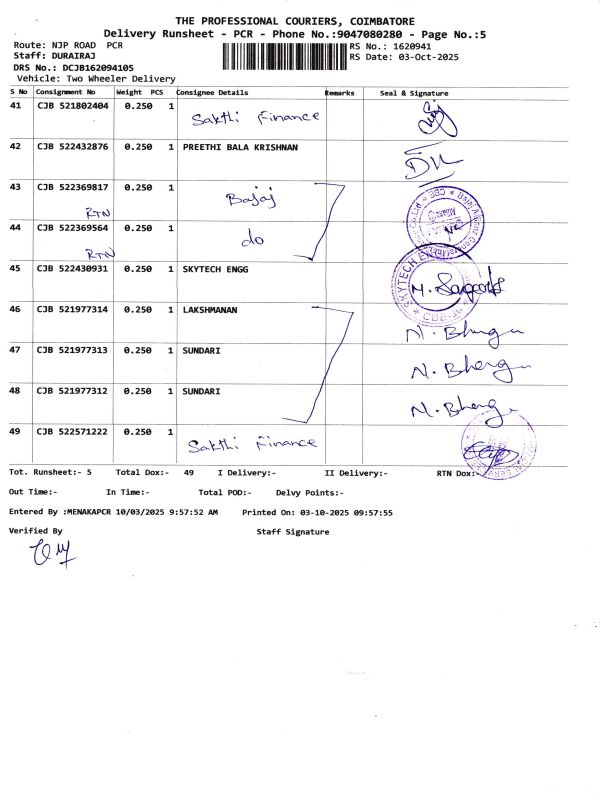 THE PROFESSIONAL COURIERS, COIMBATORE
Delivery Runsheet - PCR - Phone No.:9047080280 - Page No.:5
Route: NJP ROAD PCR RS No.: 1620941
Staff: DURAIRAJ RS Date: 03-Oct-2025
DRS No.: DCJB162094105
Vehicle: Two Wheeler Delivery
S No Consignment No Weight PCS Consignee Details Remarks Seal & Signature
41 CJB 521802404 0.250 1 Sakthi Finance
42 CJB 522432876 0.250 1 PREETHI BALA KRISHNAN
43 CJB 522369817 0.250 1 Bajaj
RTN
44 CJB 522369564 0.250 1 do
RTN
45 CJB 522430931 0.250 1 SKYTECH ENGG
46 CJB 521977314 0.250 1 LAKSHMANAN
47 CJB 521977313 0.250 1 SUNDARI
48 CJB 521977312 0.250 1 SUNDARI
49 CJB 522571222 0.250 1 Sakthi Finance
Tot. Runsheet:- 5 Total Dox:- 49 I Delivery:- II Delivery:- RTN Dox:-
Out Time:- In Time:- Total POD:- Delvy Points:-
Entered By :MENAKAPCR 10/03/2025 9:57:52 AM Printed On: 03-10-2025 09:57:55
Verified By Staff Signature